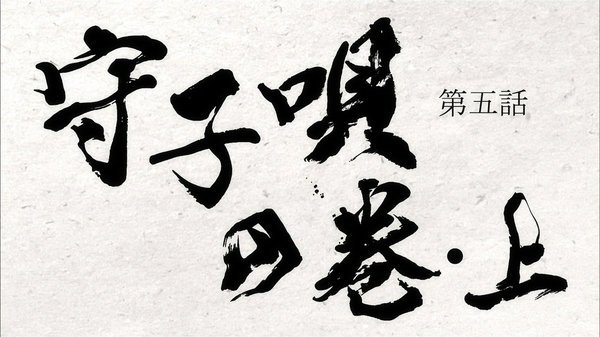 守子唄
第五話
の巻・上